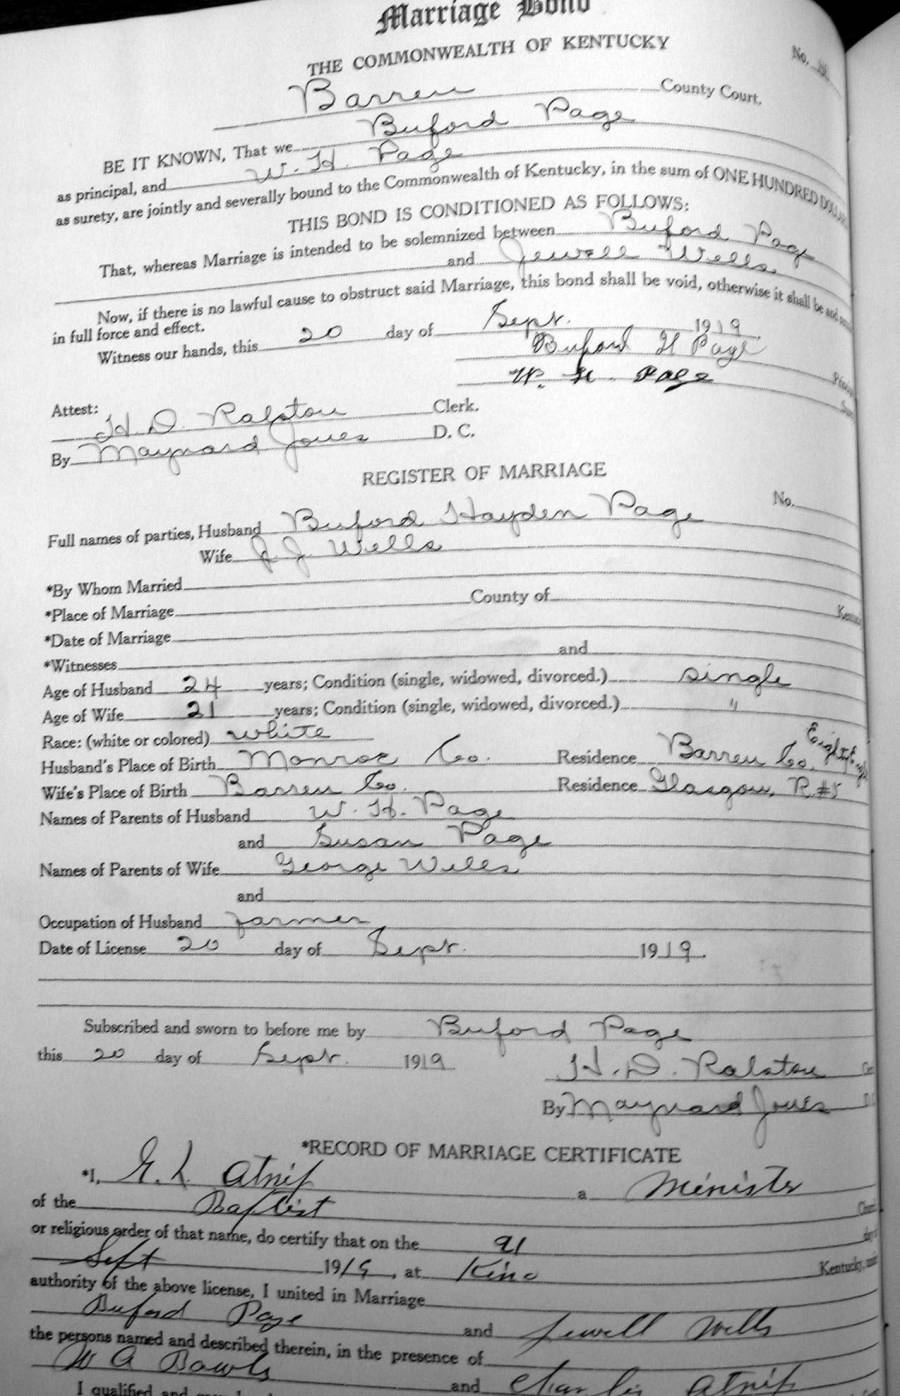 Marriage Bond
THE COMMONWEALTH OF KENTUCKY
No.
Barren County Court.
BE IT KNOWN, That we Buford Page
as principal, and W. H. Page
as surety, are jointly and severally bound to the Commonwealth of Kentucky, in the sum of ONE HUNDRED DOLLAR
THIS BOND IS CONDITIONED AS FOLLOWS:
That, whereas Marriage is intended to be solemnized between Buford Page
and Jewell Wells
Now, if there is no lawful cause to obstruct said Marriage, this bond shall be void, otherwise it shall be and
in full force and effect.
Witness our hands, this 20 day of Sept. 1919
Buford H Page
W. H. Page
Attest:
H. D. Ralston Clerk.
By Maynard Jones D. C.
REGISTER OF MARRIAGE
No.
Full names of parties, Husband Buford Hayden Page
Wife J. J. Wells
*By Whom Married
*Place of Marriage County of
*Date of Marriage
*Witnesses and
Age of Husband 24 years; Condition (single, widowed, divorced.) single
Age of Wife 21 years; Condition (single, widowed, divorced.) "
Race: (white or colored) white
Husband's Place of Birth Monroe Co. Residence Barren Co.
Wife's Place of Birth Barren Co. Residence Glasgow, R#5
Names of Parents of Husband W. H. Page
and Susan Page
Names of Parents of Wife George Wells
and
Occupation of Husband farmer
Date of License 20 day of Sept. 1919.
Subscribed and sworn to before me by Buford Page
this 20 day of Sept. 1919
H. D. Ralston
By Maynard Jones
*RECORD OF MARRIAGE CERTIFICATE
*I, G. L. Atnip a Minister
of the Baptist
or religious order of that name, do certify that on the 21
Sept 1919, at Kino Kentucky,
authority of the above license, I united in Marriage
Buford Page and Jewell Wells
the persons named and described therein, in the presence of
W A Bowls and Charlis Atnip
I qualified and